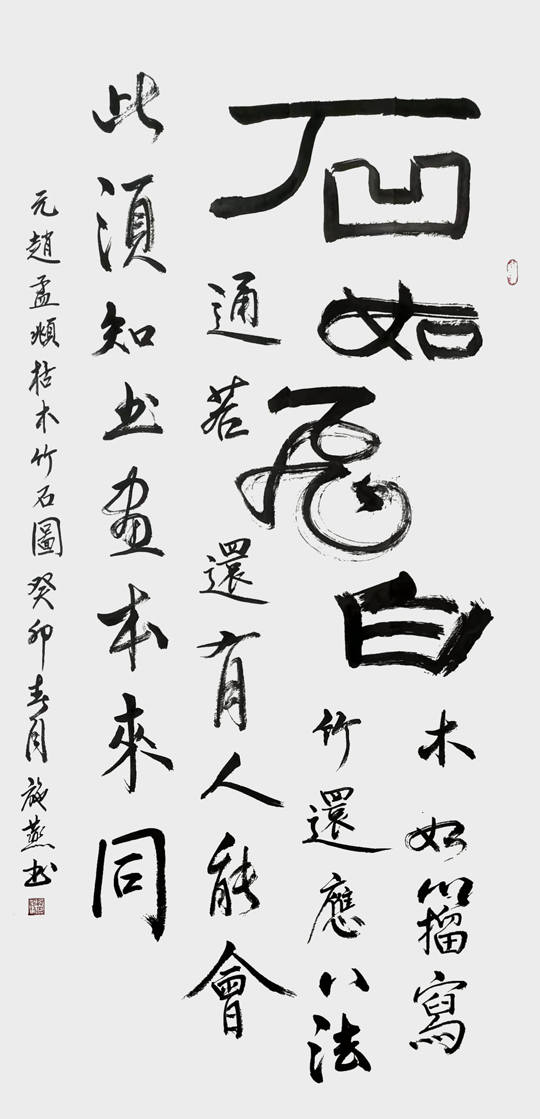 石如飛白
木如籀寫
竹還應八法
通若還有人能會
此須知书畫本來同
元趙孟頫枯木竹石圖癸卯春月施燕书